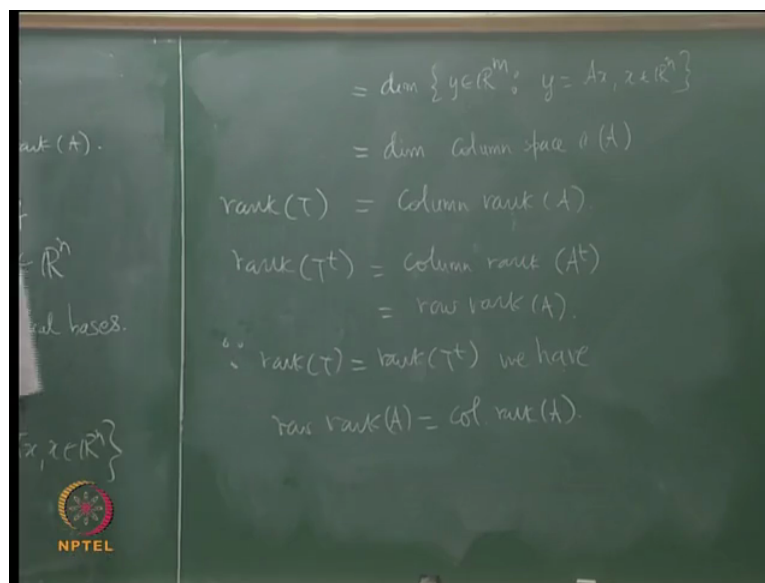 rank(A).
∈ ℝⁿ
bases.
x, x∈ℝⁿ}
= dim {y∈ℝᵐ: y = Ax, x∈ℝⁿ}
= dim column space (A)
rank(T) = Column rank(A).
rank(Tᵗ) = column rank (Aᵗ)
= row rank(A).
∵ rank(T) = rank(Tᵗ) we have
row rank(A) = col. rank(A).
NPTEL